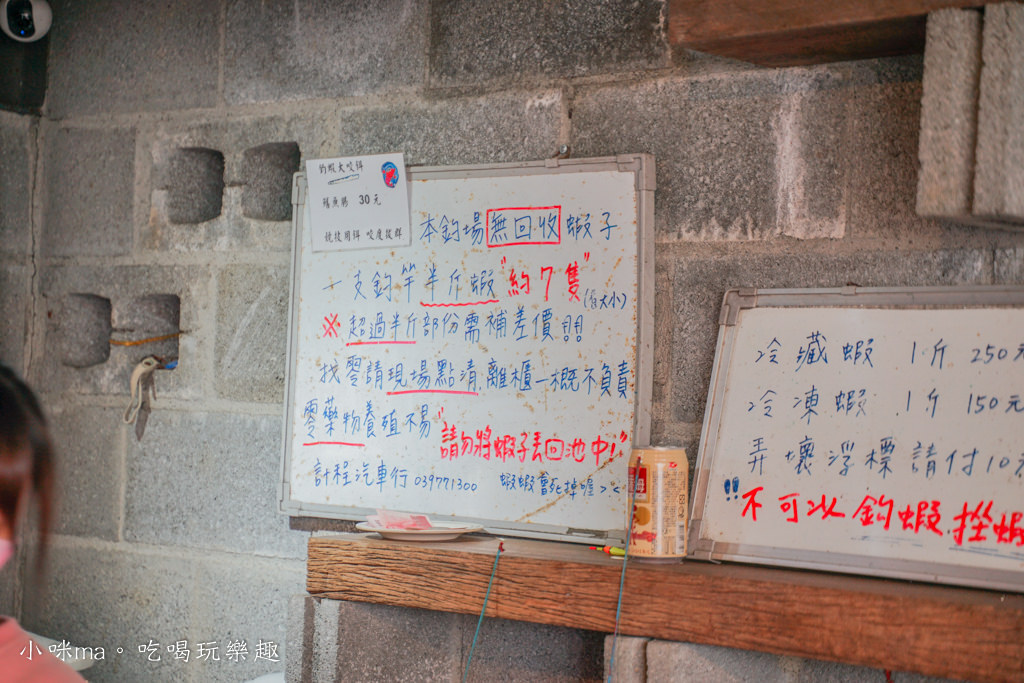 釣蝦大咬餌
30元
競技用餌 咬度拔群
本釣場無回收蝦子
一支釣竿半斤蝦"約7隻"(依大小)
※超過半斤部份需補差價!!
找零請現場點清,離櫃一概不負責
零藥物養殖不易"請勿將蝦子丟回池中!"
計程汽車行 039771300 蝦蝦會死掉喔><
冷藏蝦 1斤 250元
冷凍蝦 1斤 150元
弄壞浮標請付10元
!!不可以釣蝦.挫蝦
小咪ma。吃喝玩樂趣